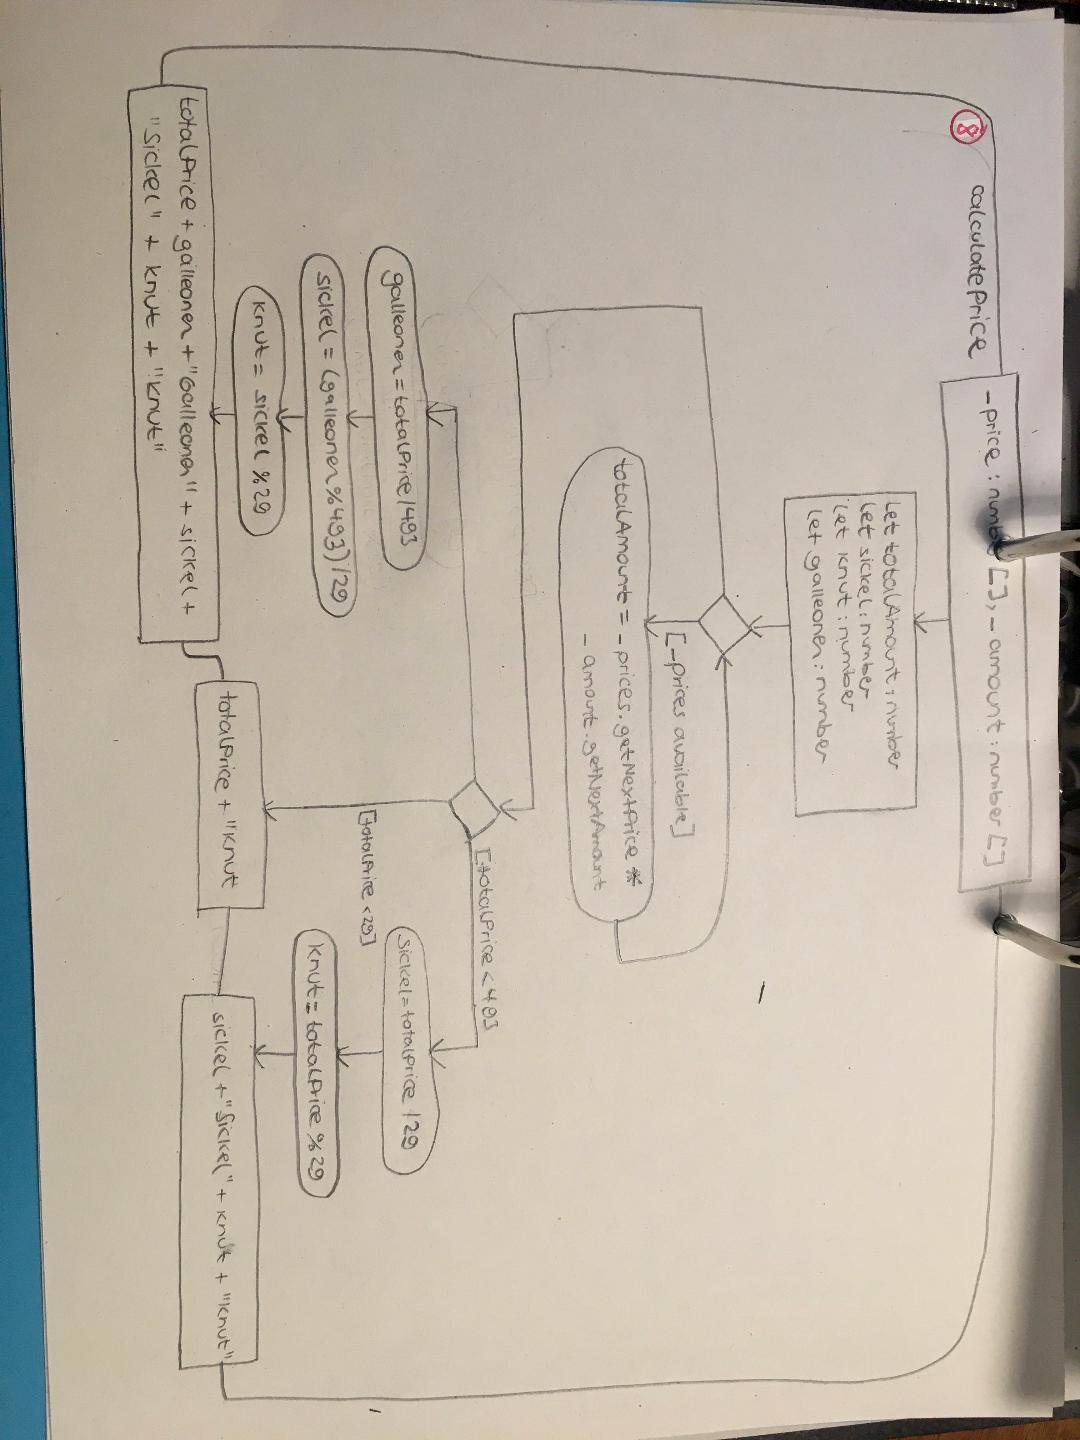 8
calculatePrice
_price : number [], _ amount : number []
Let totalAmount : number
let sickel : number
let knut : number
let galleonen : number
[_prices available]
totalAmount = _ prices.getNextPrice *
_ amount.getNextAmount
[totalPrice < 493
galleonen = totalPrice / 493
sickel = totalPrice / 29
[totalPrice < 29]
sickel = (galleonen % 493) / 29
knut = totalPrice % 29
knut = sickel % 29
totalPrice + "Knut
sickel + "Sickel" + knut + "Knut"
totalPrice + galleonen + "Galleonen" + sickel +
"Sickel" + knut + "Knut"